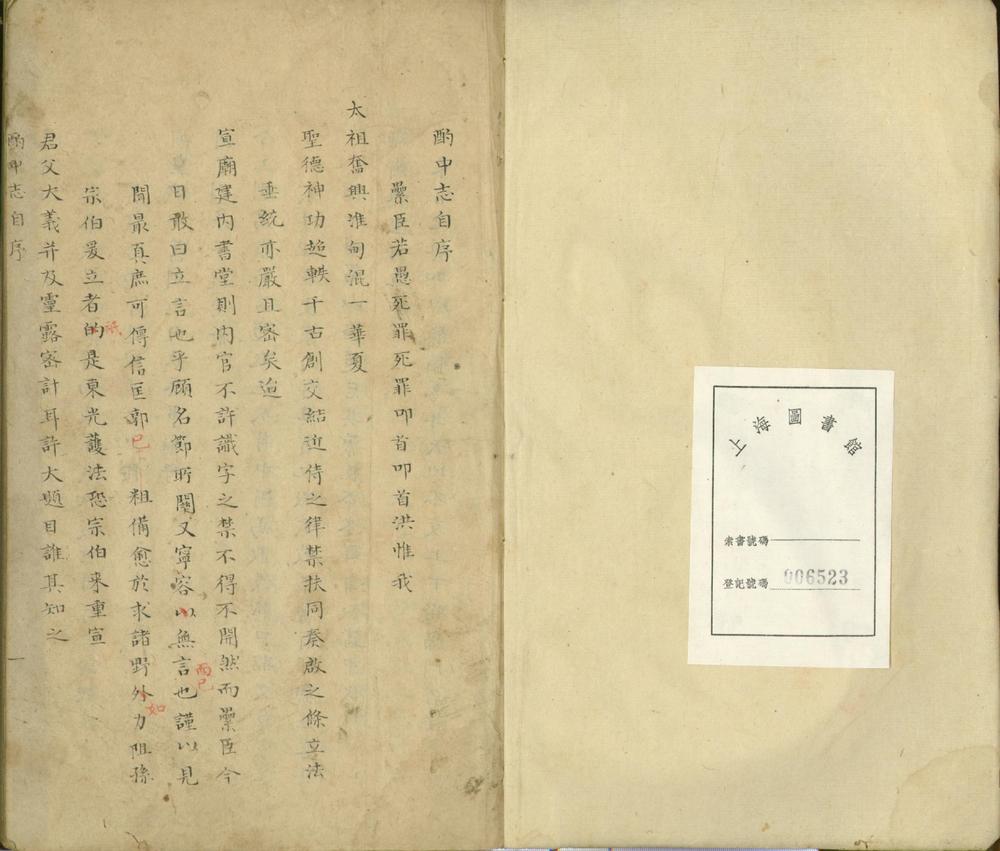 上海圖書館
索書號碼
登記號碼 006523
酌中志自序
纍臣若愚死罪死罪叩首叩首洪惟我
太祖奮興淮甸混一華夏
聖德神功超軼千古創交結近侍之律禁扶同奏啟之條立法
垂統亦嚴且密矣迨
宣廟建內書堂則內官不許識字之禁不得不開然而纍臣今
日敢曰立言也乎顧名節所關又寧容以無言也謹以見
而已
聞最真庶可傳信匡郭已粗備愈於求諸野外力阻孫
如
宗伯爰立者的是東光護法恐宗伯來重宣
祇
君父大義并及靈露密計耳許大題目誰其知之
酌中志自序
一